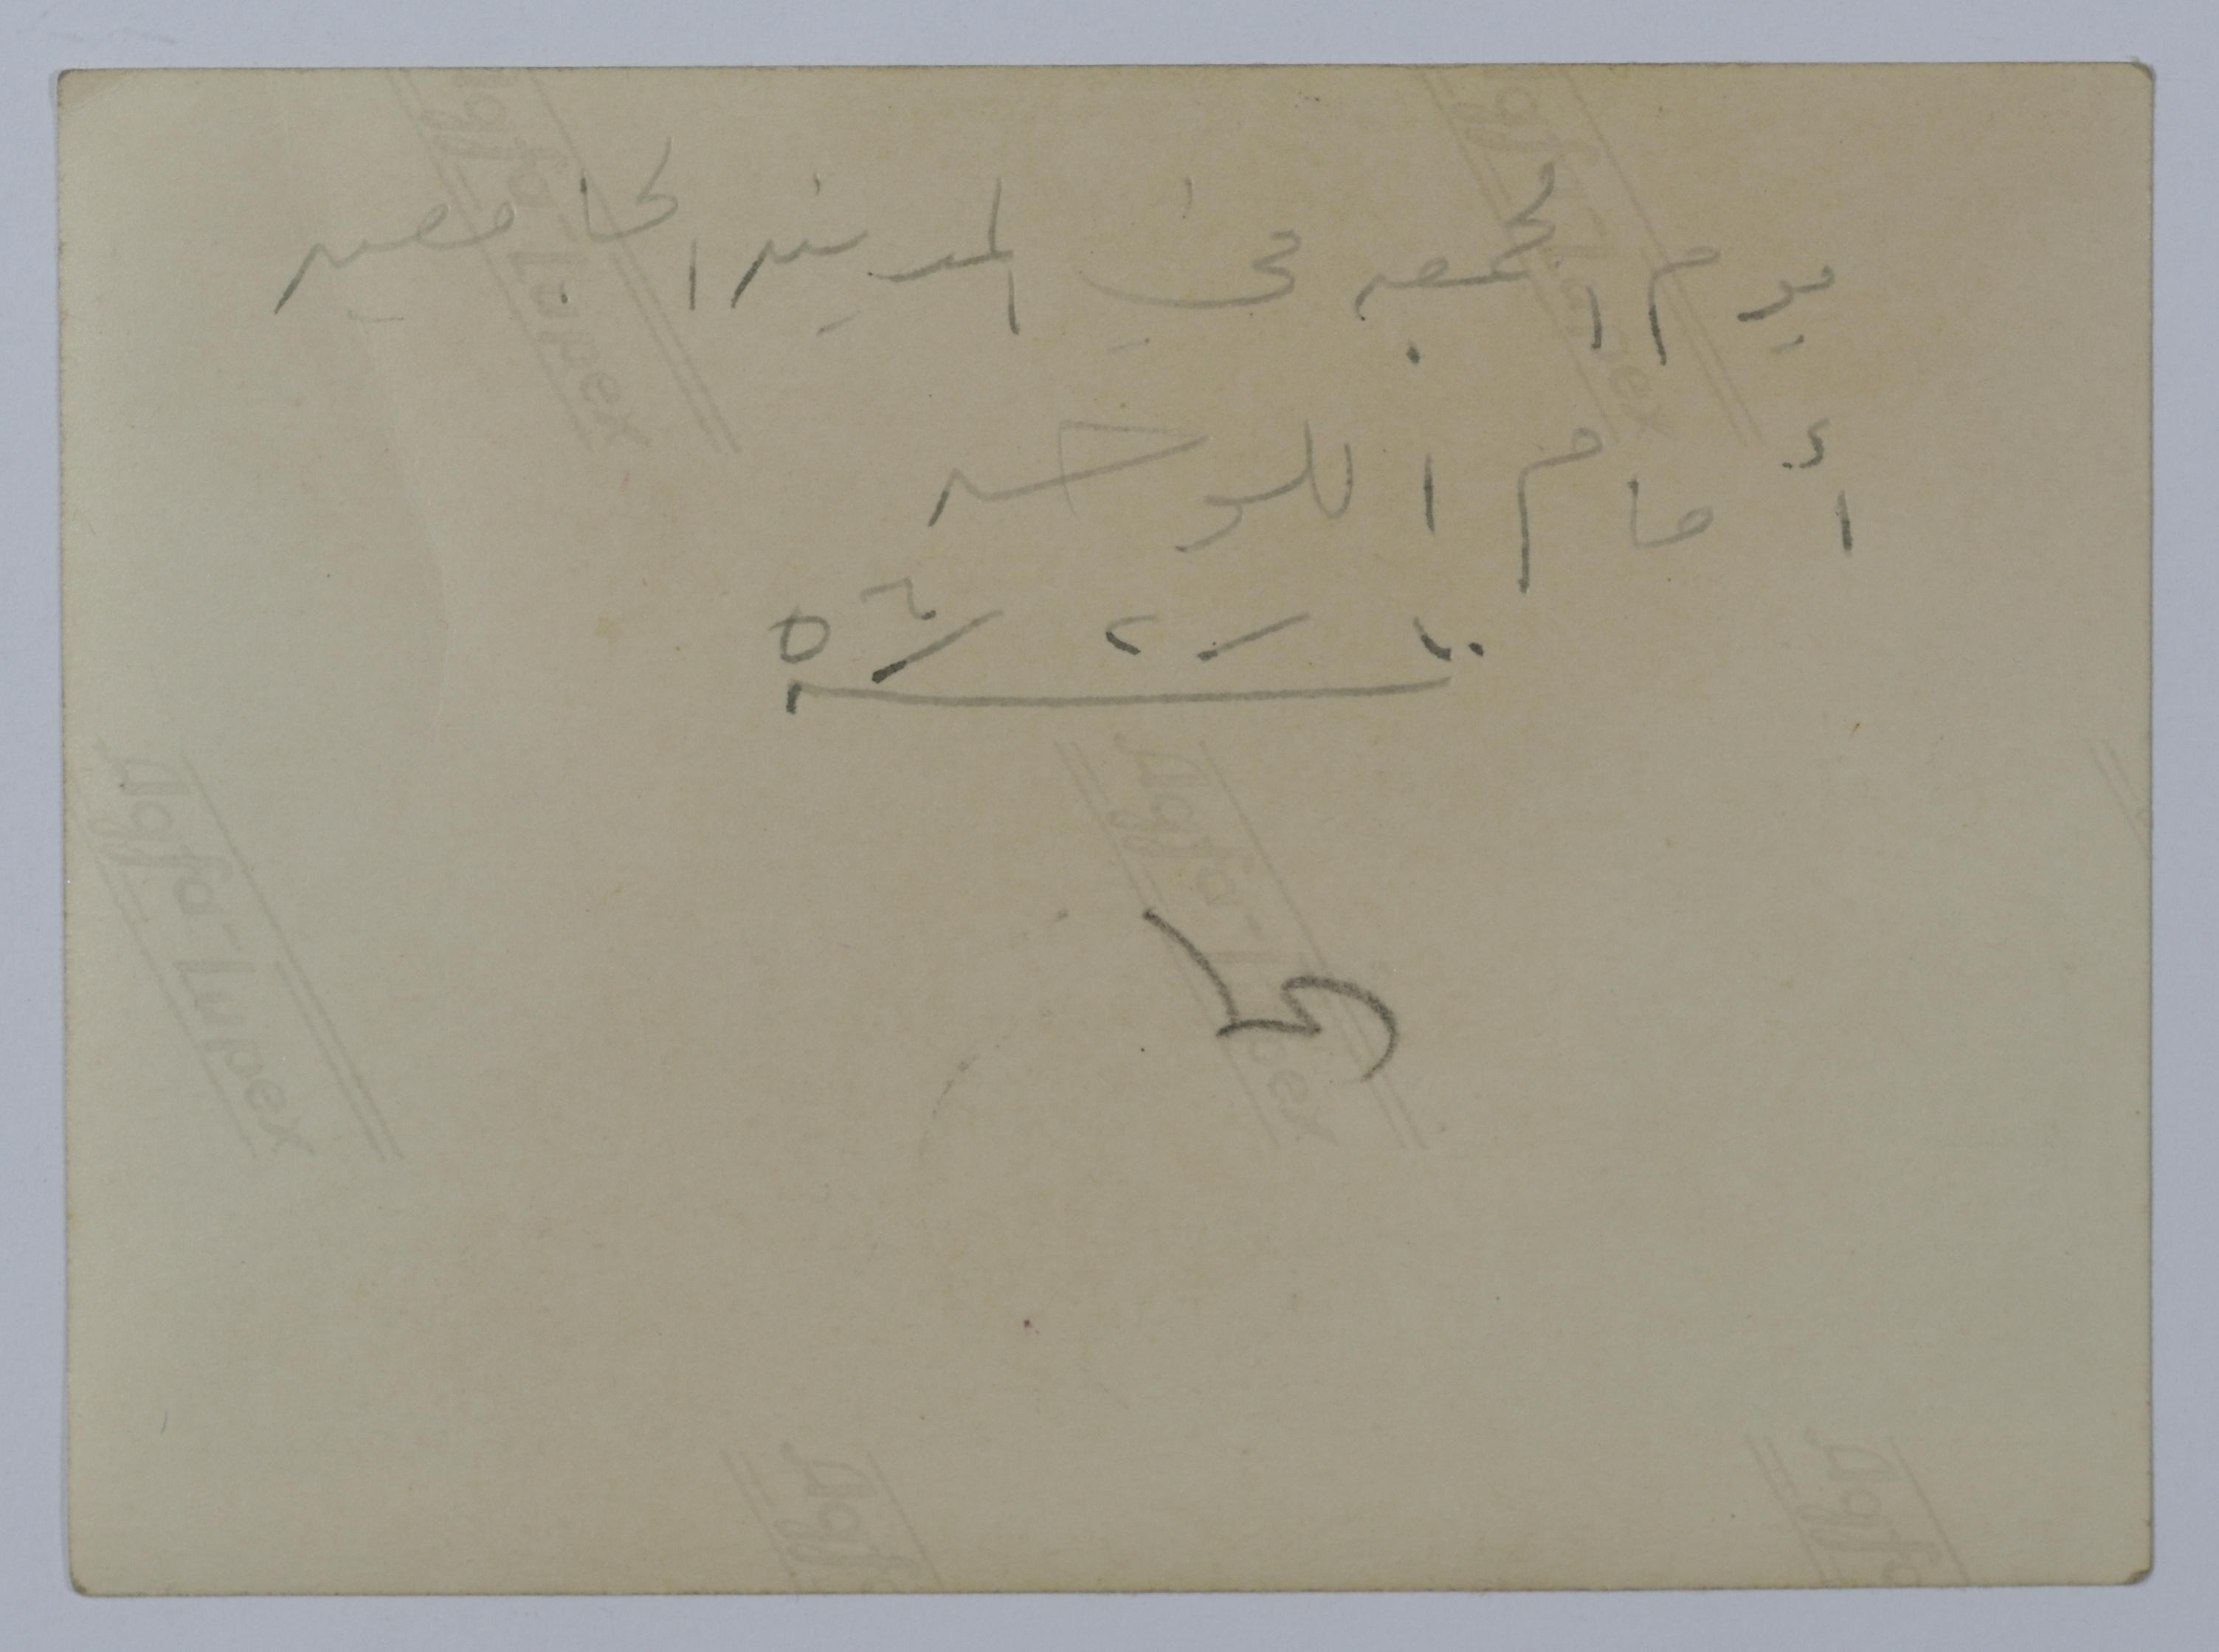 يوم الجمعه في المدينه الجامعيه
أمام اللوحه
Agfa-Lupex
Agfa-Lupex
Agfa-Lupex
Agfa-Lupex
Agf
Agfa